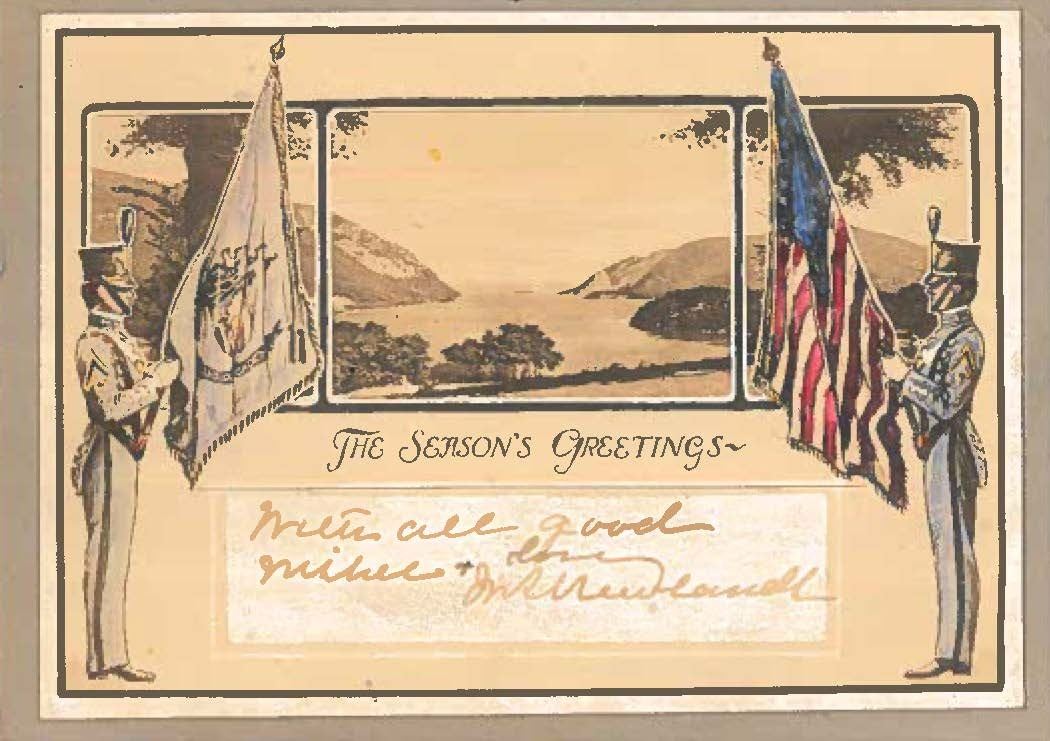 The Season's Greetings~
With all good
wishes + love